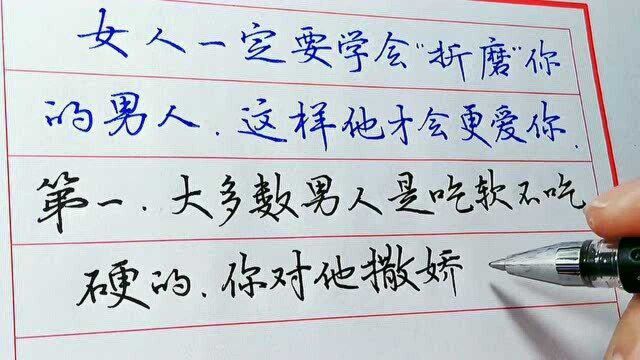 女人一定要学会"折磨"你
的男人.这样他才会更爱你.
第一.大多数男人是吃软不吃
硬的.你对他撒娇